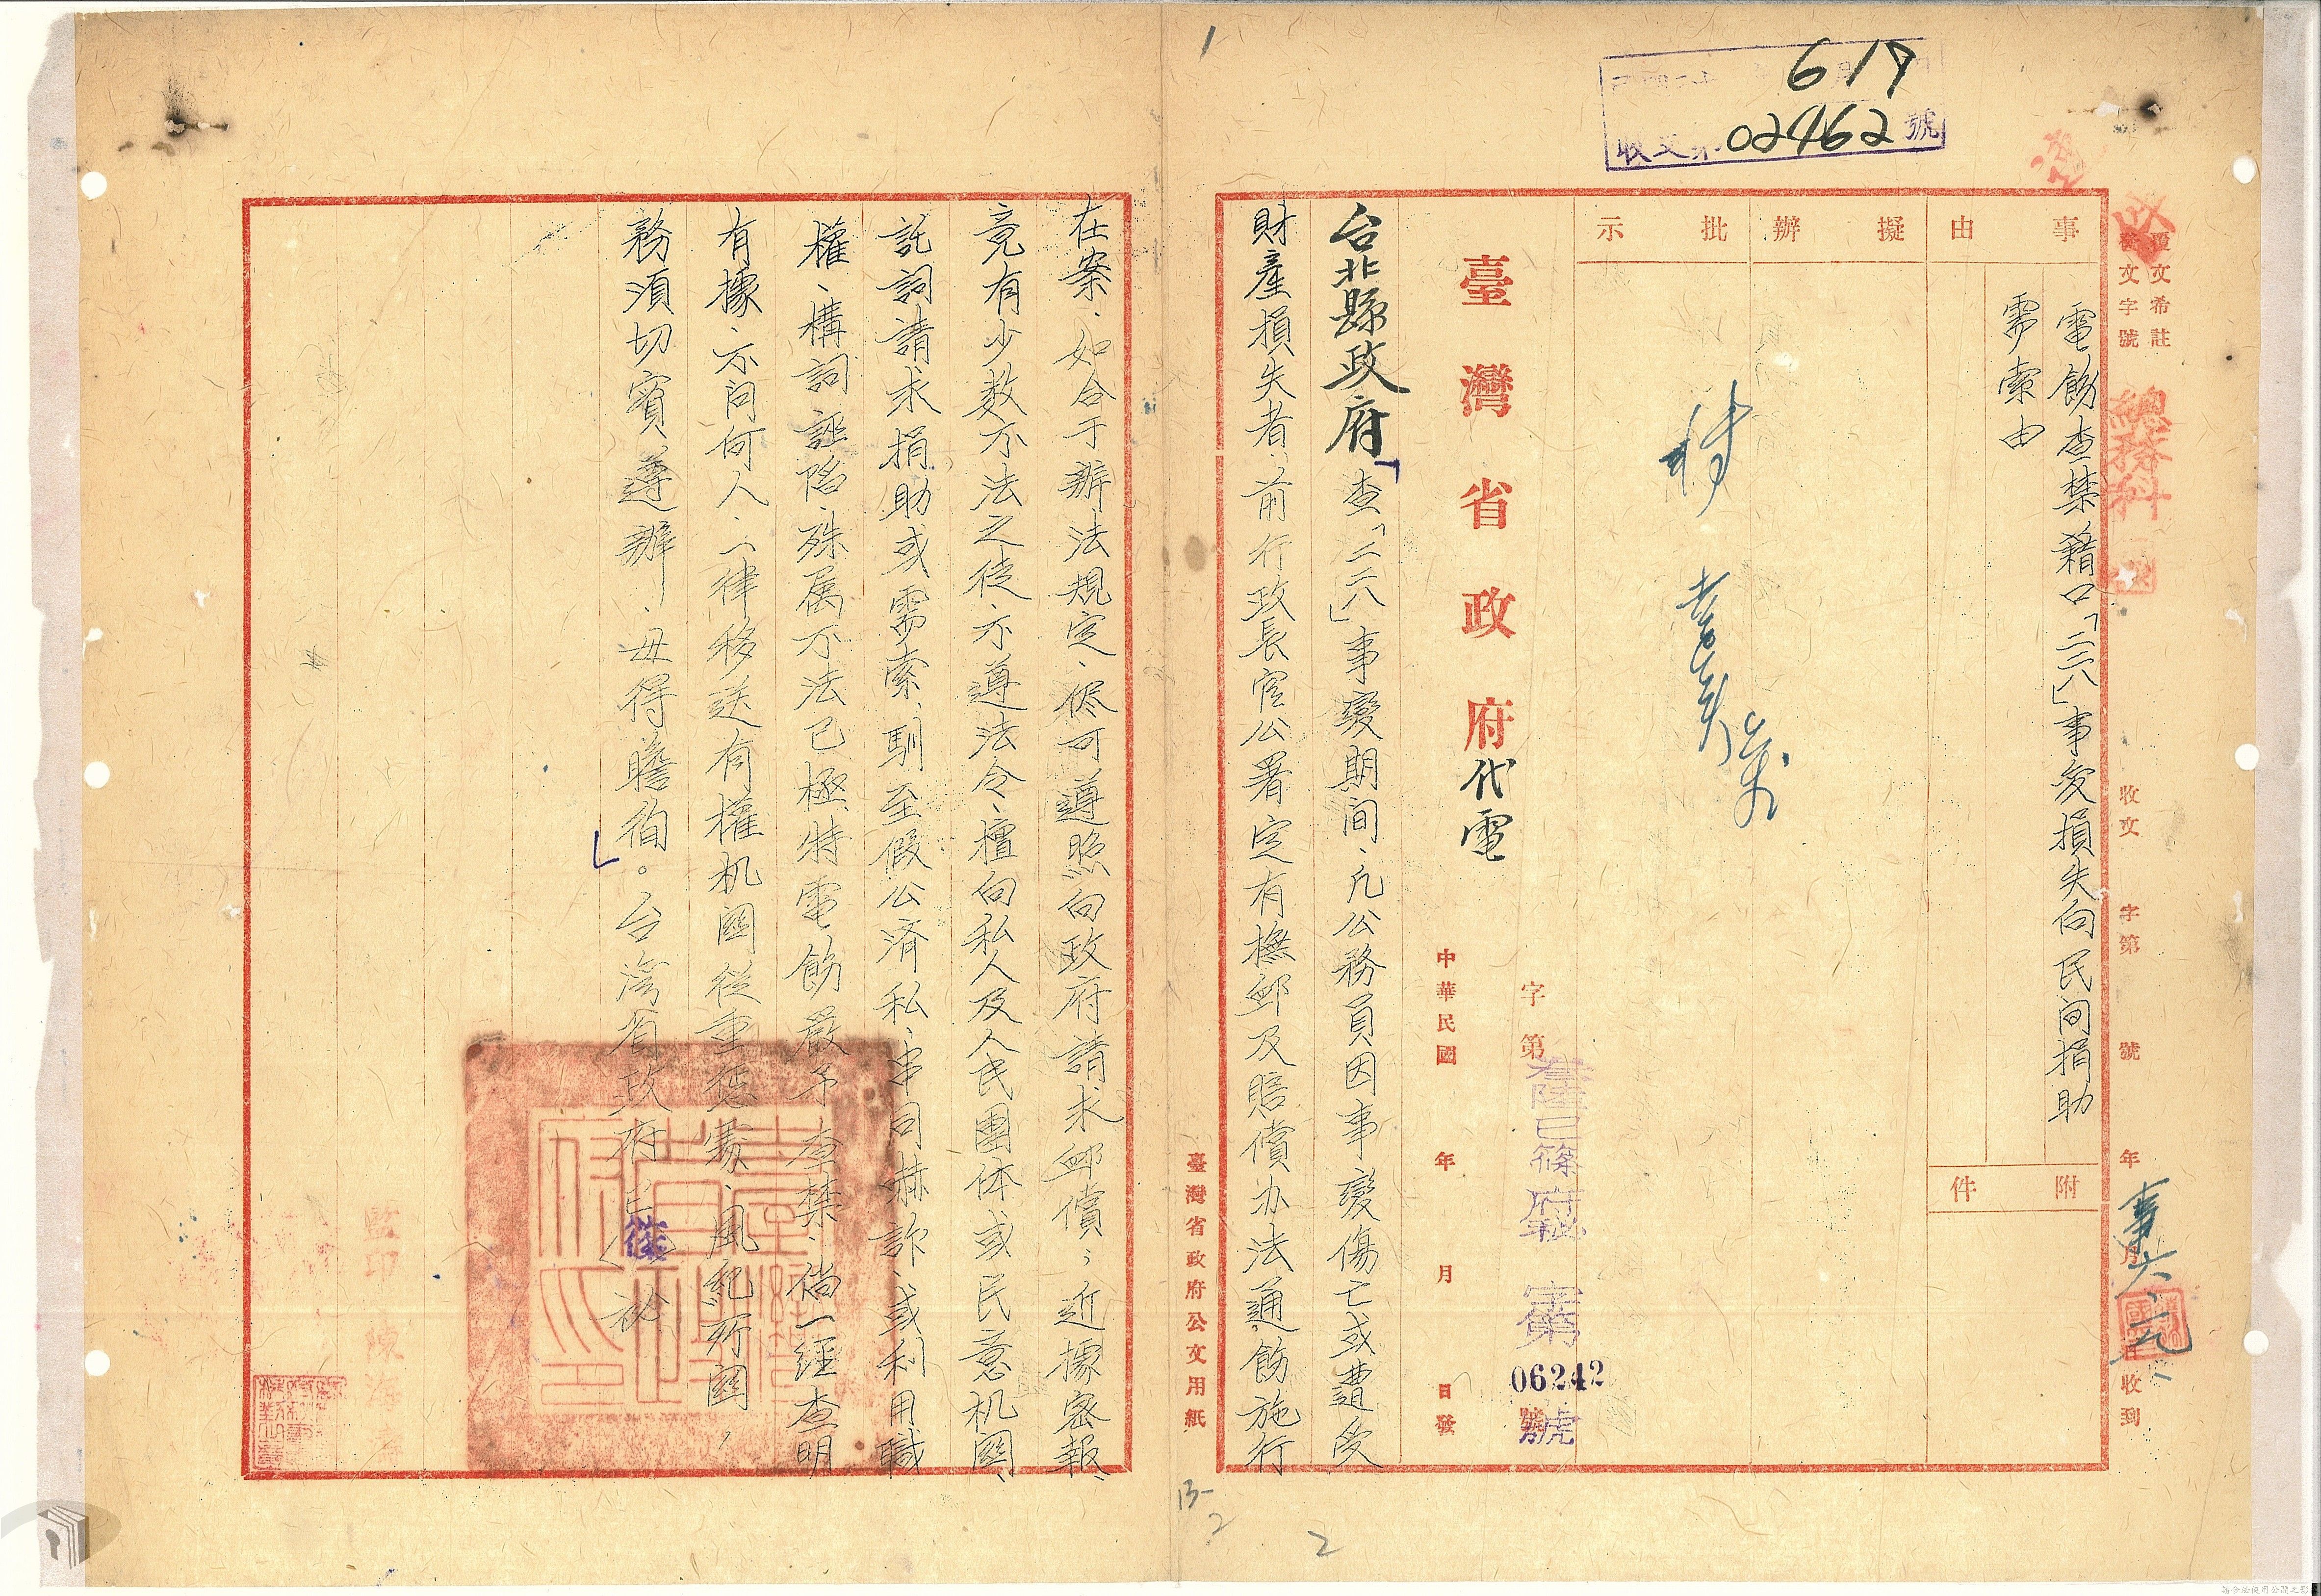 1
619
收文第02462號
收
覆文希註
發文字號
總務科
收文 字第 號 年 月 日收到
事由
電飭查禁藉口「二二八」事変損失向民间捐助
需索由
附件
擬辦
批示
臺灣省政府代電
字第 號
叁陸巳篠府秘 字第 06242 號
中華民國 年 月 日發
台北縣政府「查「二二八」事變期间、凡公務員因事變傷亡或遭受
財產損失者、前行政長官公署定有撫卹及賠償办法通飭施行
臺灣省政府公文用紙
在案、如合于辦法規定、儘可遵照向政府請求卹償；近據密報、
竟有少数不法之徒、不遵法令、擅向私人及人民團体或民意机関、
託詞請求捐助或需索、馴至假公濟私、串同嚇詐、或利用職
權、構詞誣陷、殊属不法已極、特電飭嚴予查禁、倘一經查明
有據、不问何人、一律移送有權机関從重懲處、風紀所関，
務須切實遵辦、毋得瞻徇。」台湾省政府巳篠秘
監印 陳
13-2
2